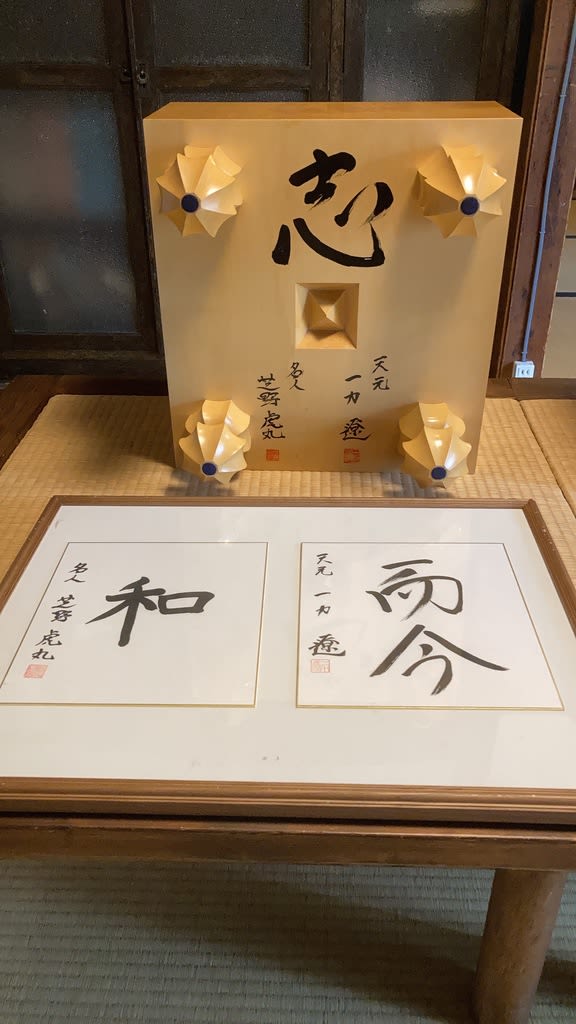 志
天元
一力 遼
名人
芝野 虎丸
而今
天元 一力 遼
和
名人 芝野 虎丸